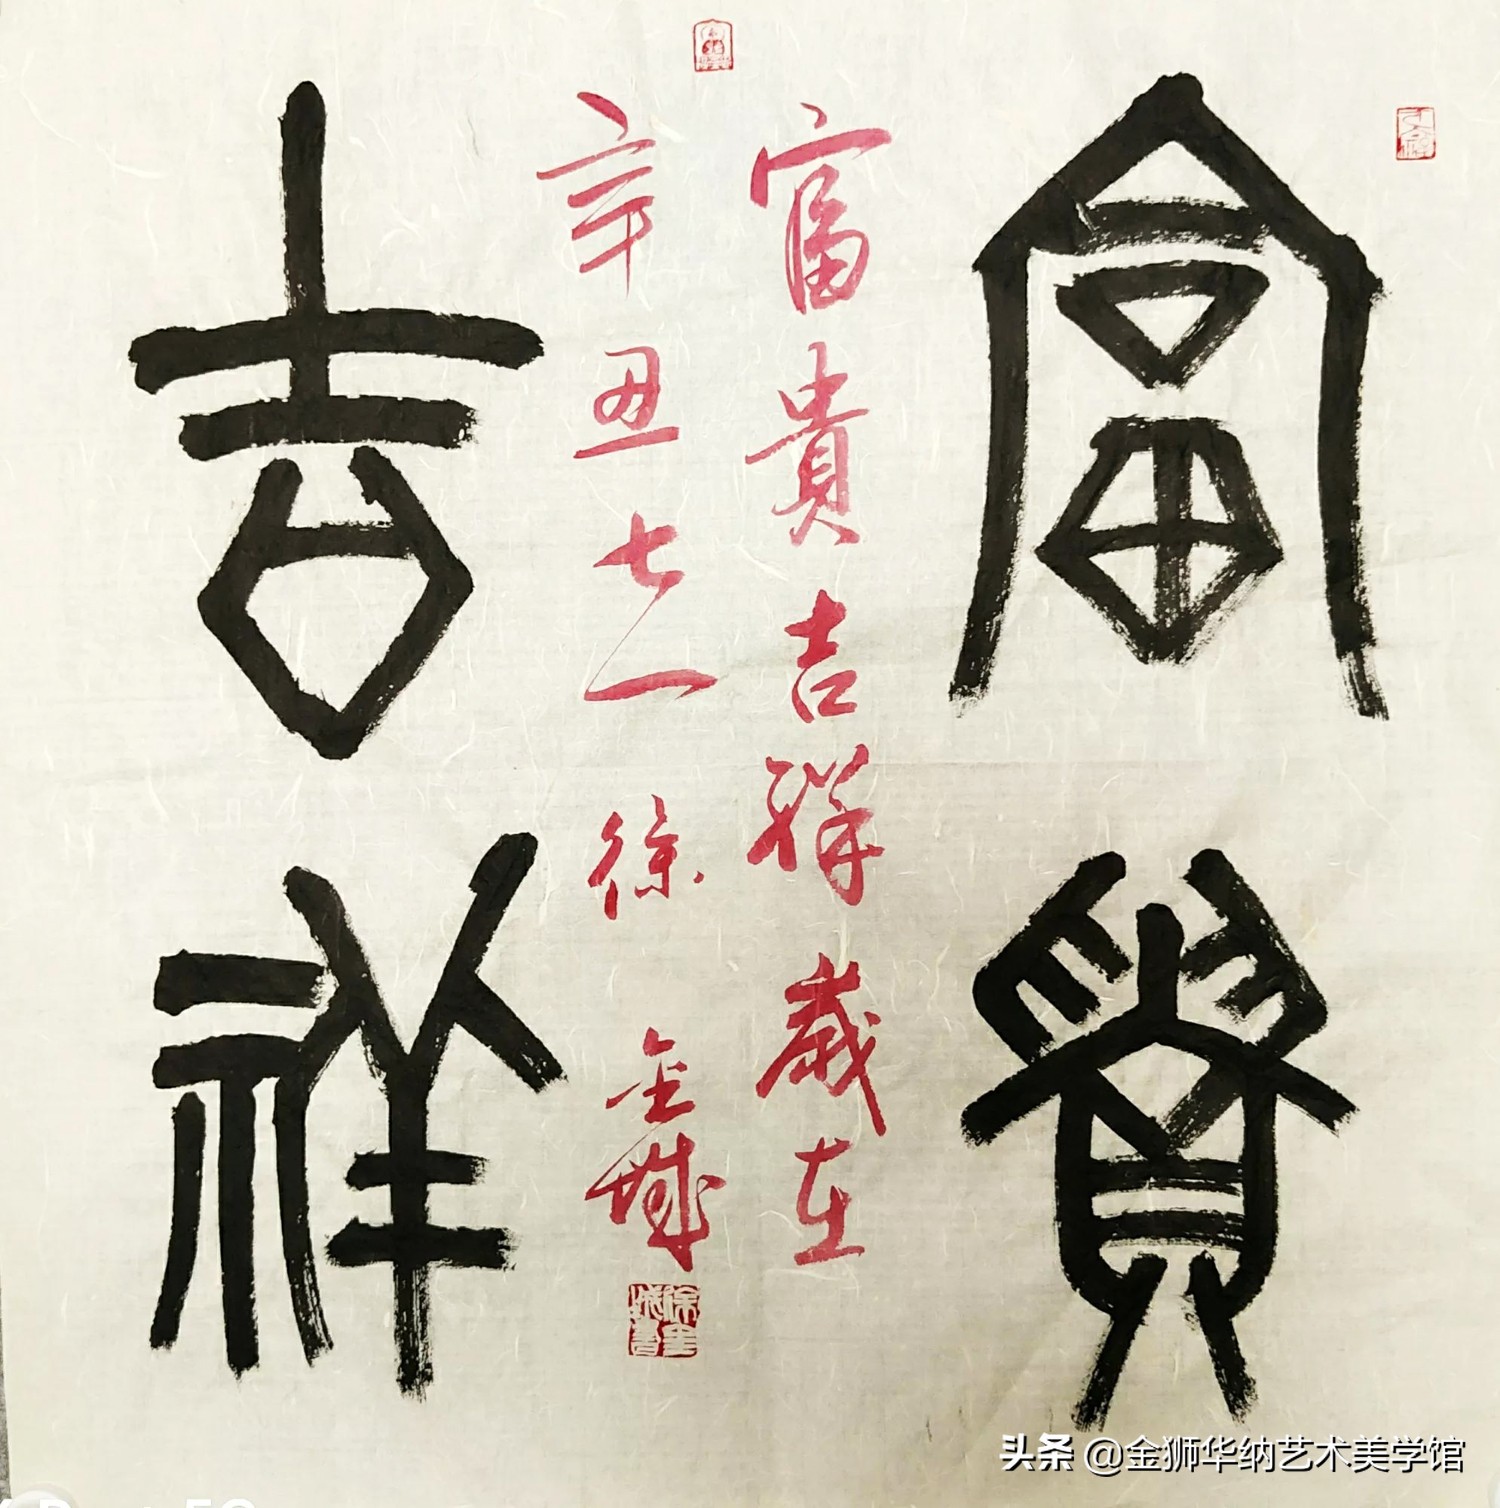 富貴
富貴吉祥歲在
辛丑七一 徐金城
徐金城書
吉祥
头条 @金狮华纳艺术美学馆